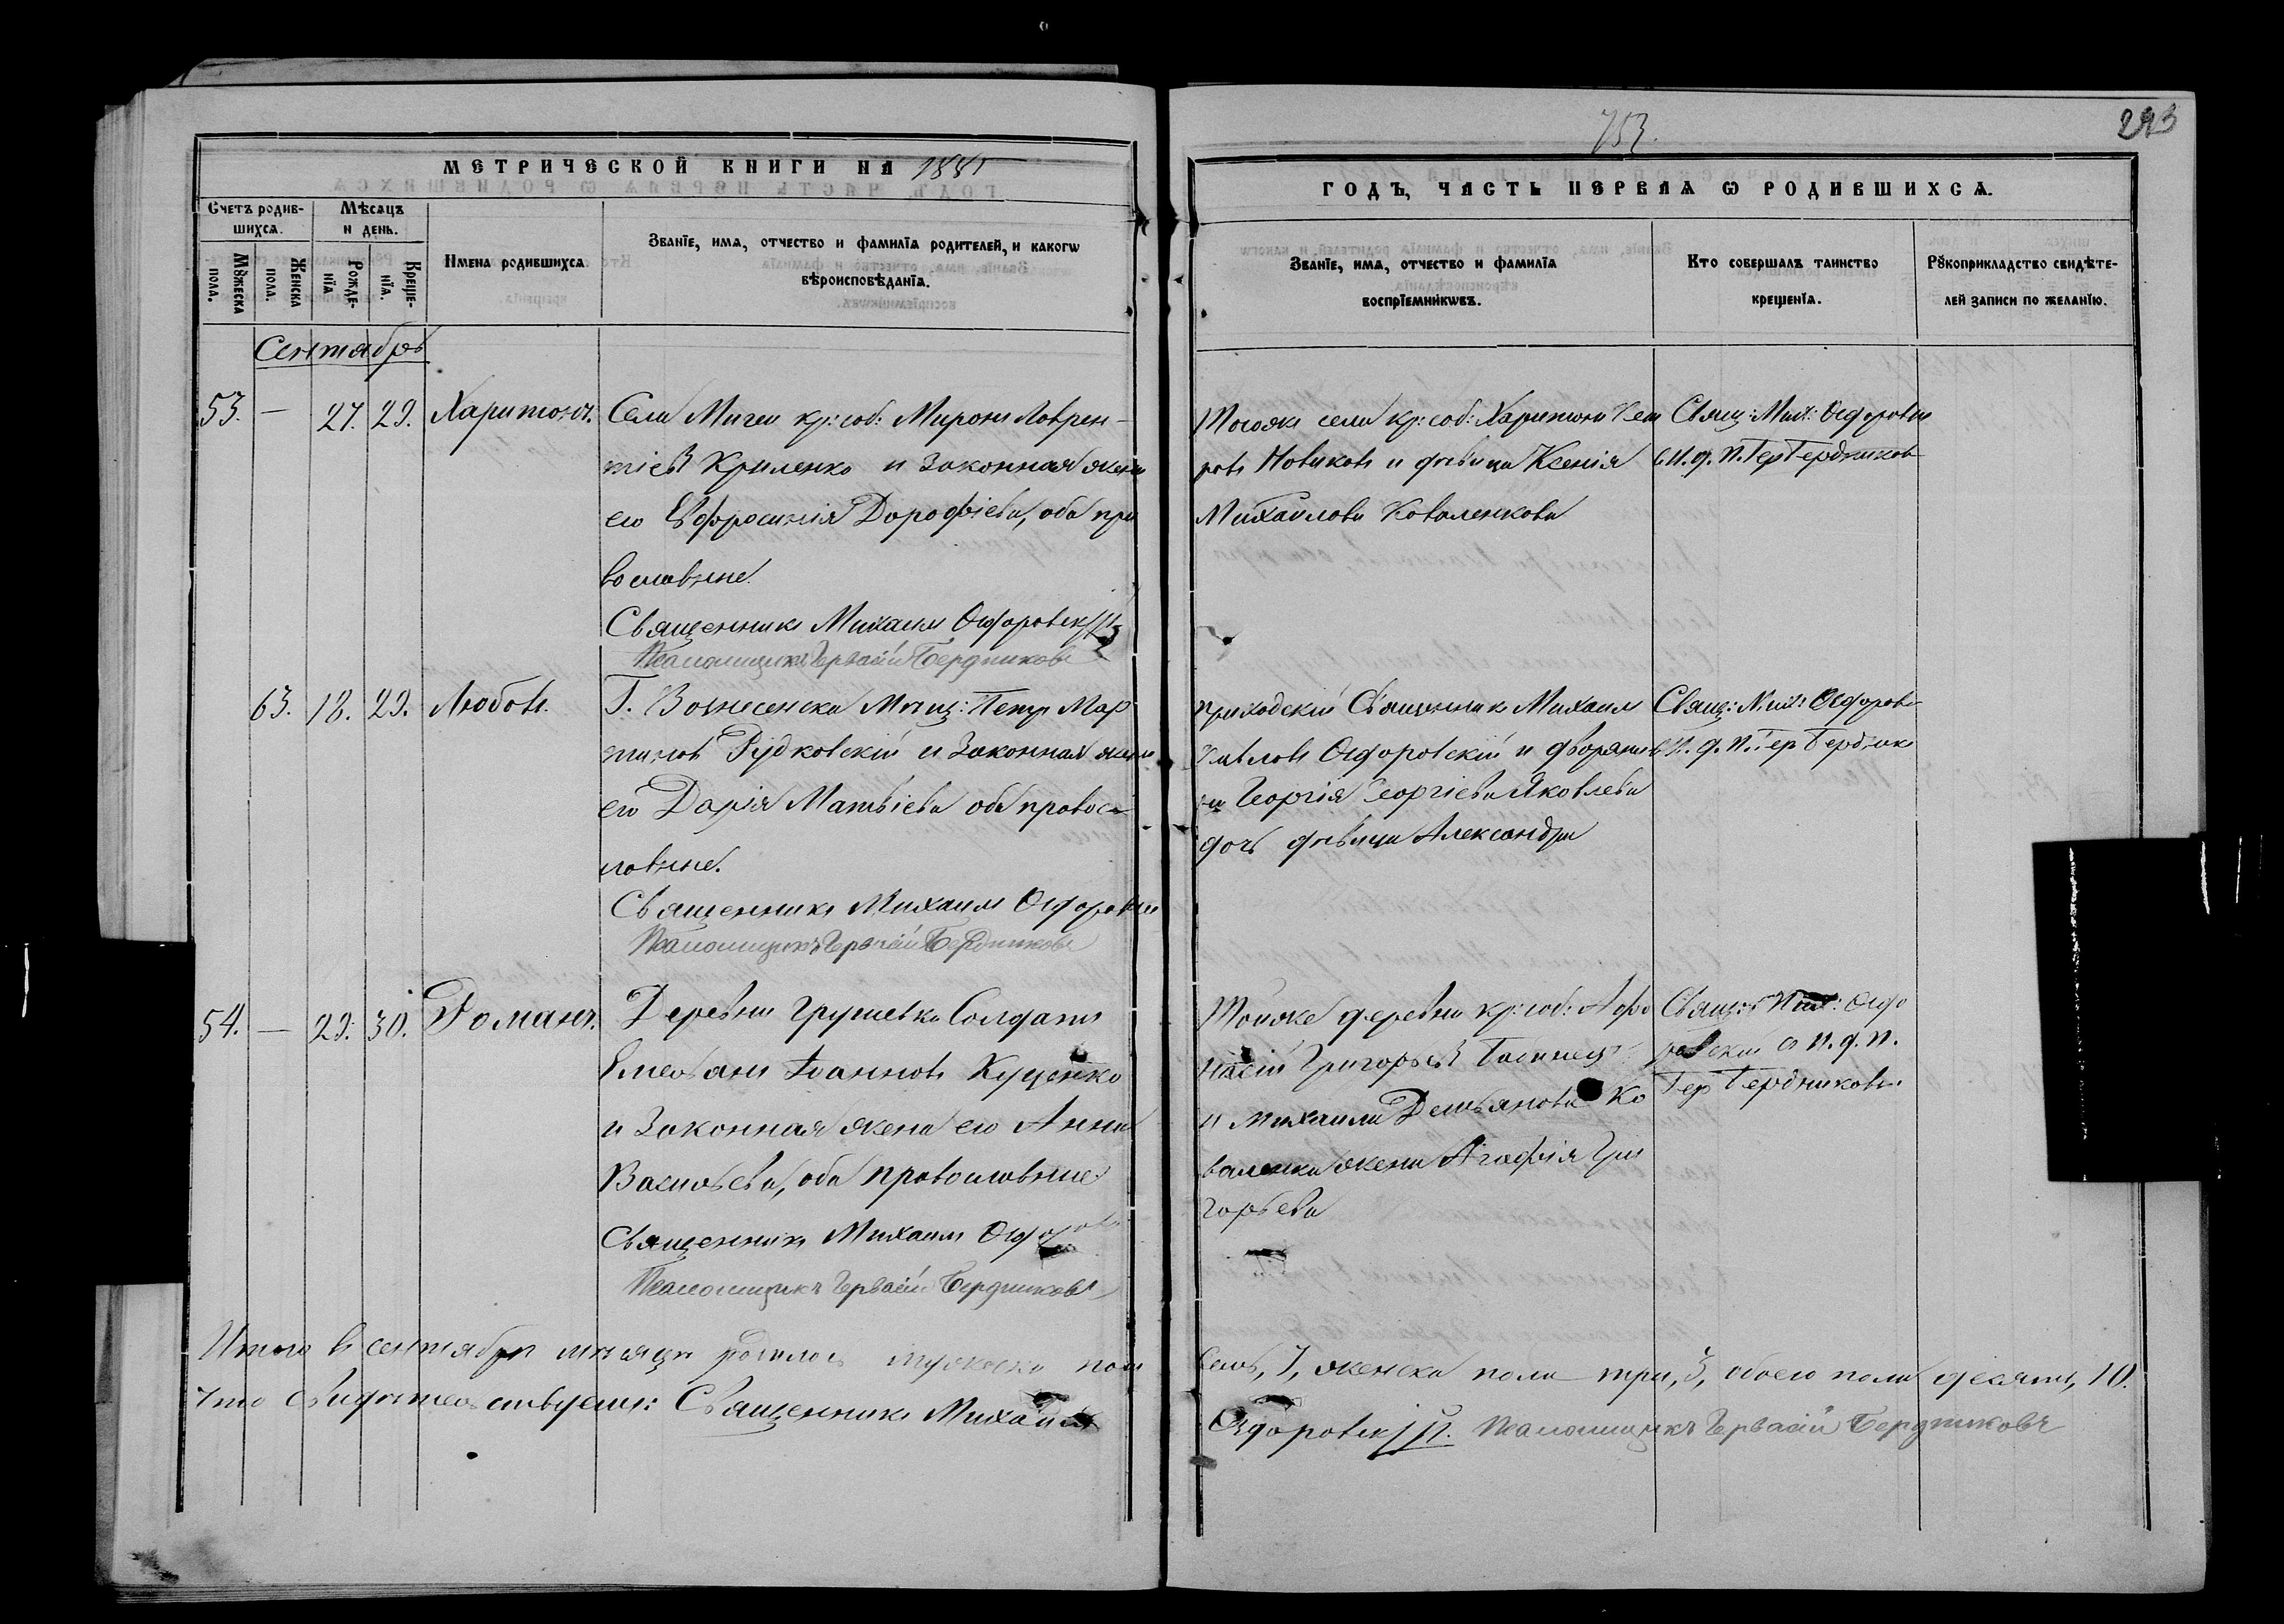 753.
293
МЕТРИЧЕСКОЙ КНИГИ НА 1881
ГОДЪ, ЧАСТЬ ПЕРВАѦ Ѡ РОДИВШИХСѦ.
Счетъ родив-
шихсѧ.
Мѣсѧцъ
и день.
Мꙋжеска
пола.
Женска
пола.
Рожде-
нїѧ
Креще-
нїѧ.
Имена родившихсѧ
Званїе, имѧ, отчество и фамилїѧ родителей, и какогѡ
вѣроисповѣданїѧ.
Званїе, имѧ, отчество и фамилїѧ
воспрїемникѡвъ.
Кто совершалъ таинство
крещенїѧ.
Рꙋкоприкладство свидѣте-
лей записи по желанїю.
Сентябрь
53. — 27. 29. Харитонъ.
Села Мигеи кр: соб: Миронъ Лаврен-
тіевъ Криленко и законная жена
его Евфросинія Дорофіева, оба пра
вославные.
Священникъ Михаилъ
Псаломщикъ Гервасій Бердниковъ
Тогоже села кр: соб: Харитонъ
ровъ Новиковъ и дѣвица Ксенія
Михаилова Коваленкова
Свящ: Мих:
с И. д. П. Гер Бердников
63. 18. 29. Любовь.
Г. Вознесенска Мѣщ: Петръ Мар
тиновъ Рудковскій и законная жена
его Дарія Матвіева оба правос-
лавные.
Священникъ Михаилъ
Псаломщикъ Гервасій Бердниковъ
Приходскій Священникъ Михаилъ
Павловъ и дворянин
Георгія Георгіева Яковлева
дочь дѣвица Александра
Свящ: Мих:
с И. д. П. Гер Бердник
54. — 29. 30. Романъ.
Деревни Грушевки Солдатъ
Емеліанъ Іоанновъ Куценко
и законная жена его Анна
Васильева, оба православные
Священникъ Михаилъ
Псаломщикъ Гервасій Бердниковъ
Тойже деревни кр: соб: Афа
насій Григорьевъ Бабинецъ
и Михаила Демьянова Ко
валенка жена Агафія Гри
горьева
Свящ: Мих:
с И. д. П.
Гер Бердниковъ
Итого въ сентябрѣ мѣсяцѣ родилось мужеска пола
Семь, 7, женска пола три, 3, обоего пола десять, 10.
Что свидѣтельствуемъ: Священникъ Михаилъ
Псаломщикъ Гервасій Бердниковъ